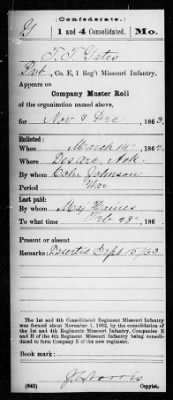 (Confederate.)
G 1 and 4 Consolidated. Mo.
T. T. Gates
Pvt, Co. E, 1 Reg't Missouri Infantry.
Appears on
Company Muster Roll
of the organization named above,
for Nov & Dec, 1863.
Enlisted:
When March 14, 186
Where Des arc, Ark.
By whom Johnson
Period War
Last paid:
By whom Maj Haines
To what time 28, 186
Present or absent
Remarks: Deserted Sept 15/63
The 1st and 4th Consolidated Regiment Missouri Infantry
was formed about November 1, 1862, by the consolidation of
the 1st and 4th Regiments Missouri Infantry, Companies E
and H of the 4th Regiment Missouri Infantry being consoli-
dated to form Company E of the new regiment.
Book mark:
(642)
Copyist.